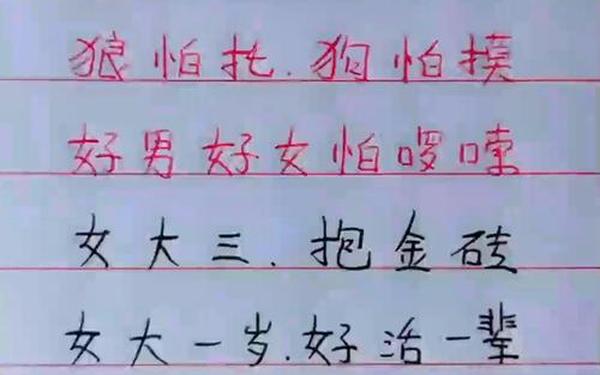 狼怕托.狗怕摸
好男好女怕啰嗦
女大三.抱金砖
女大一岁.好活一辈